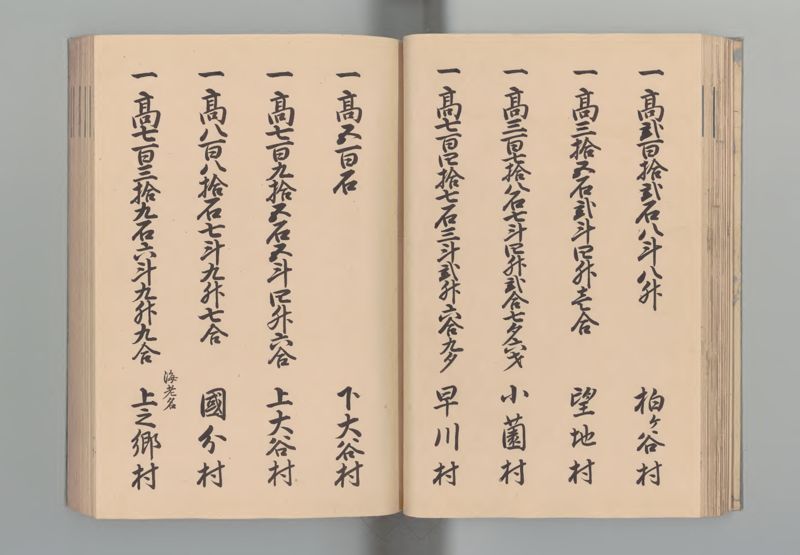 一高弐百拾弐石八斗八升 柏ヶ谷村
一高三拾五石弐斗四升壱合 望地村
一高三百七拾八石七斗四升弐合七夕六才 小薗村
一高七百四拾七石三斗弐升六合九夕 早川村
一高五百石 下大谷村
一高七百九拾五石五斗四升六合 上大谷村
一高八百八拾石七斗九升七合 國分村
海老名
一高七百三拾九石六斗九升九合 上之郷村